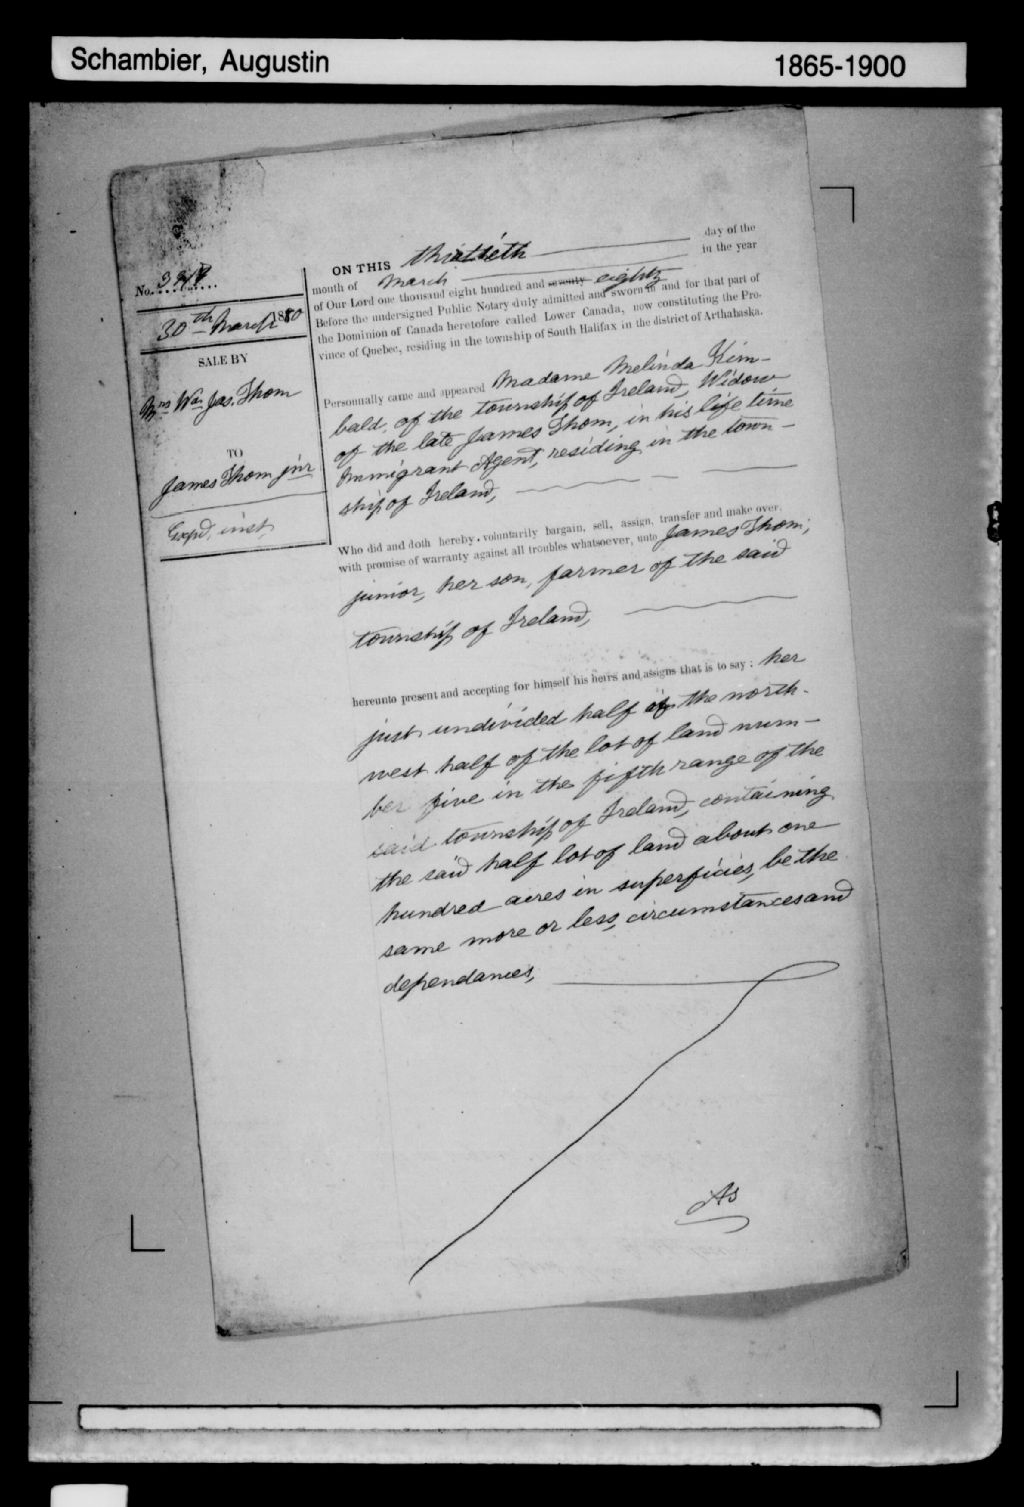 Schambier, Augustin 1865-1900
No.
30th March 1880
SALE BY
Mrs Wid. Jas. Thom
TO
James Thom jnr
Exp'd, inst,
ON THIS thirtieth day of the
month of March in the year
of Our Lord one thousand eight hundred and seventy eighty
Before the undersigned Public Notary duly admitted and sworn in and for that part of
the Dominion of Canada heretofore called Lower Canada, now constituting the Pro-
vince of Quebec, residing in the township of South Halifax in the district of Arthabaska.
Personnally came and appeared Madame Melinda Kim-
bald, of the township of Ireland, Widow
of the late James Thom, in his life time
Immigrant Agent, residing in the town-
ship of Ireland,
Who did and doth hereby, voluntarily bargain, sell, assign, transfer and make over,
with promise of warranty against all troubles whatsoever, unto James Thom,
junior, her son, farmer of the said
township of Ireland,
hereunto present and accepting for himself his heirs and assigns that is to say: her
just undivided half of the north-
west half of the lot of land num-
ber five in the fifth range of the
said township of Ireland, containing
the said half lot of land about one
hundred acres in superficies, be the
same more or less, circumstances and
dependances,
As